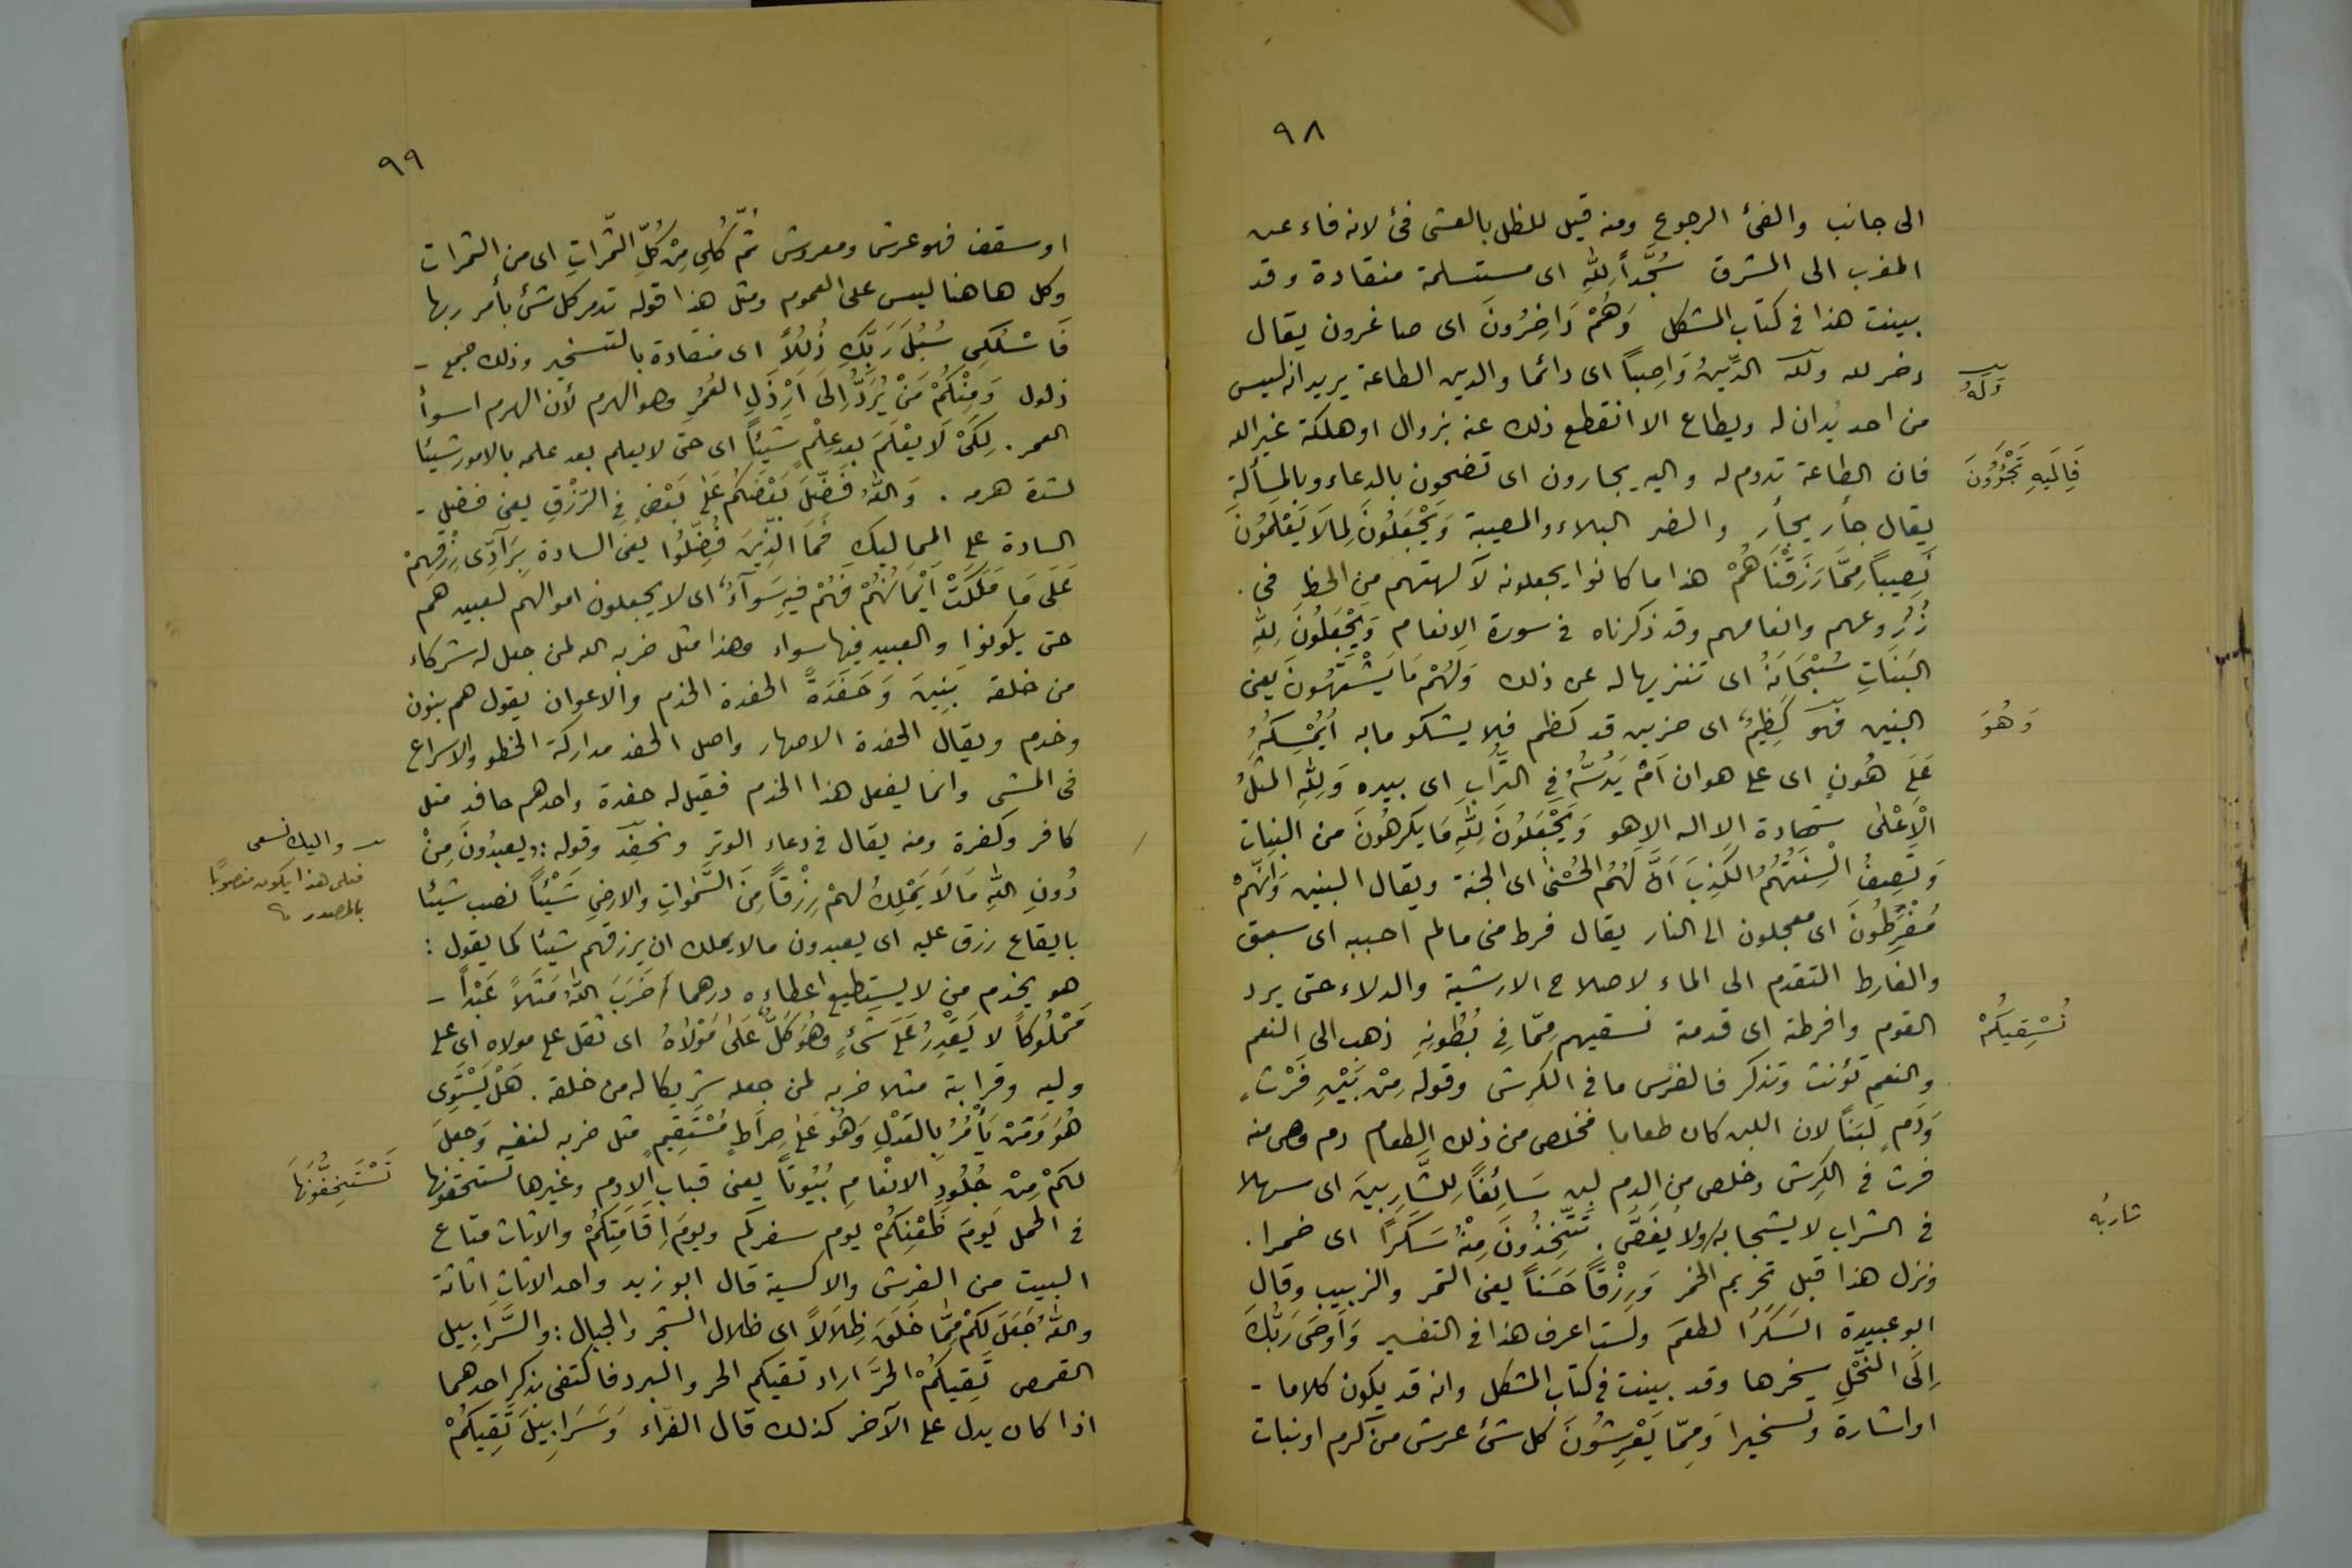 ٩٨
الى جانب والفئ الرجوع ومنه قيل للظل بالعشى فئ لانه فاء عن
المغرب الى المشرق سُجَّداً لِلّٰهِ اى مستسلمة منقادة وقد
بينت هذا فى كتاب المشكل وَهُمْ دَاخِرُونَ اى صاغرون يقال
دخر لله ولك الدِّينُ وَاصِباً اى دائما والدين الطاعة يريد انه ليس
وَلَهُ
من احد يُدان له ويطاع الا انقطع ذلك عنه بزوال او هلكة غير الله
فان الطاعة تدوم له واليه يجارون اى تضجون بالدعاء وبالمسألة
فَاِلَيهِ تَجْئَرُونَ
يقال جأر يجأر والضر البلاء والمصيبة وَيَجْعَلُونَ لِمَا لَا يَعْلَمُونَ
نَصِيباً مِمَّا رَزَقْنَاهُمْ هذا ما كانوا يجعلونه لآلهتهم من الحظ فى .
زُرُوعهم وانعامهم وقد ذكرناه فى سورة الانعام وَيَجْعَلُونَ لِلّٰهِ
البَنَاتِ سُبْحَانَهُ اى تنزيها له عن ذلك وَلَهُمْ مَا يَشْتَهُونَ يعنى
البنين فهو كَظِيمٌ اى حزين قد كظم فلا يشكو ما به أيُمْسِكُهُ
وَهُوَ
عَلَى هُونٍ اى على هوان اَمْ يَدُسُّهُ فِى التُّرَابِ اى بيده وَلِلّٰهِ المَثَلُ
الْاَعْلٰى شهادة الا اله الا هو وَيَجْعَلُونَ لِلّٰهِ مَا يَكرهُونَ من البنات
وَتَصِفُ اَلْسِنَتُهُمُ الكَذِبَ اَنَّ لَهُمُ الحُسْنٰى اى الجنة ويقال البنين وَاَنَّهُمْ
مُفْرَطُونَ اى معجلون الى النار يقال فرط منى مالم احببه اى سبق
والفارط المتقدم الى الماء لاصلاح الارشية والدلاء حتى يرد
القوم وافرطته اى قدمته نسقيهم مِمّا فِى بُطُونِهِ ذهب الى النعم
نُسْقِيكُمْ
والنعم تؤنث وتذكر فالفرس ما فى الكرش وقوله مِنْ بَيْنِ فَرْثٍ
وَدَمٍ لَبَناً لان اللبن كان طعاما فخلص من ذلك الطعام دم وهى منه
فرث فى الكرش وخلص من الدم لبن سَائِغاً لِلشَّارِبِينَ اى سهلا
فى الشراب لا يشجا به ولا يُغصُّ . تَتَّخِذُونَ مِنْهُ سَكَرًا اى خمرا .
شاربُه
ونزل هذا قبل تحريم الخمر وَرِزْقاً حَسَناً يعنى التمر والزبيب وقال
ابو عبيدة السَكَرًا لطعم ولست اعرف هذا فى التفسير وَاَوحَى رَبُّكَ
اِلَى النَحْلِ سخرها وقد بينت فى كتاب المشكل وانه قد يكون كلاما -
او اشارة وتسخيرا وَمِمّا يَعْرِشُونَ كل شئ عرش من كرم او نبات
٩٩
او سقف فهو عرش ومعروش ثُمَّ كُلِى مِنْ كُلِّ الثَّمَراتِ اى من الثمرات
وكل هاهنا ليس على العموم ومثل هذا قوله تدمر كل شئ بأمر ربها
فَاسْلُكِى سُبُلَ رَبِّكِ ذُلُلاً اى منقادة بالتسخير وذلك جمع -
ذلول وَمِنْكُمْ مَنْ يُرَدُّ اِلَى اَرْذَلِ العُمُرِ وهو الهرم لأن الهرم اسوأ
العمر . لِكَىْ لَا يَعْلَمَ بعد عِلْمٍ شَيْئاً اى حتى لا يعلم بعد علمه بالامور شيئا
لشدة هرمه . وَاللّٰهُ فَضَّلَ بَعْضَكُم عَلٰى بَعْضٍ فِى الرِّزْقِ يعنى فضل -
السادة على المماليك فَمَا الَّذِينَ فُضِّلُوا يعنى السادة بِرَآدِّى رِزْقِهِمْ
عَلَى مَا مَلَكَتْ اَيْمَانُهُمْ فَهُمْ فِيهِ سَوَآءٌ اى لا يجعلون اموالهم لعبيدهم
حتى يكونوا والعبيد فيها سواء وهذا مثل ضربه الله لمن جعل له شركاء
من خلقه بَنِينَ وَحَفَدَةً الحفدة الخدم والاعوان يقول هم بنون
وخدم ويقال الحفدة الاصهار واصل الحفد مداركة الخطو والاسراع
فى المشى وانما يفعل هذا الخدم فقيل له حفدة واحدهم حافد مثل
كافر وكفرة ومنه يقال فى دعاء الوتر ونحفِد وقوله : ويعبدُونَ مِنْ
واليك نسعى
فعلى هذا يكون منصوبًا
بالمصدر
دُونِ اللّٰهِ مَا لَا يَمْلِكُ لهمْ رِزْقاً مِنَ السَّمٰوَاتِ والارضِ شَيْئاً نصب شيئا
بايقاع رزق عليه اى يعبدون مالا يملك ان يرزقهم شيئا كما يقول :
هو يخدم من لا يستطيع اعطاءه درهما ضَرَبَ اللّٰهُ مَثَلاً عَبْداً -
مَمْلُوكاً لا يَقْدِرُ عَلَى شَىْءٍ وهُوَ كَلٌّ عَلَى مَوْلَاهُ اى ثقل على مولاه اى على
وليه وقرابة مثلا ضربه لمن جعله شريكا له من خلقه . هَلْ يَسْتَوِى
هُوَ وَمَنْ يَأْمُرُ بِالعَدْلِ وَهُوَ عَلٰى صِرَاطٍ مُسْتَقِيمٍ مثل ضربه لنفسه وَجعلَ
لكمْ مِنْ جُلُودِ الانْعَامِ بُيُوتاً يعنى قباب الادم وغيرها تستخفونها
تَسْتَخِفُّونَهَا
فى الحمل يَومَ ظَعْنِكُمْ يوم سفركم ويومَ اِقَامَتِكُمْ والاثاث متاع
البيت من الفرش والاكسية قال ابو زيد واحد الاثاث اثاثة
واللّٰهُ جَعَلَ لكمْ مِمَّا خَلَقَ ظِلَالاً اى ظلال الشجر والجبال : والسَّرَابِيل
القمص تَقِيكُمُ الحَرَّ اراد تقيكم الحر والبرد فاكتفى بذكر احدهما
اذا كان يدل على الآخر كذلك قال الفرّاء وَسَرَابِيلَ تَقِيكُمْ